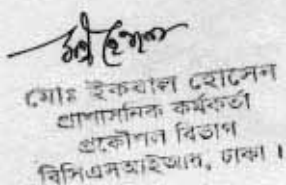 মোঃ ইকবাল হোসেন
প্রশাসনিক কর্মকর্তা
প্রকৌশল বিভাগ
বিসিএসআইআর, ঢাকা।